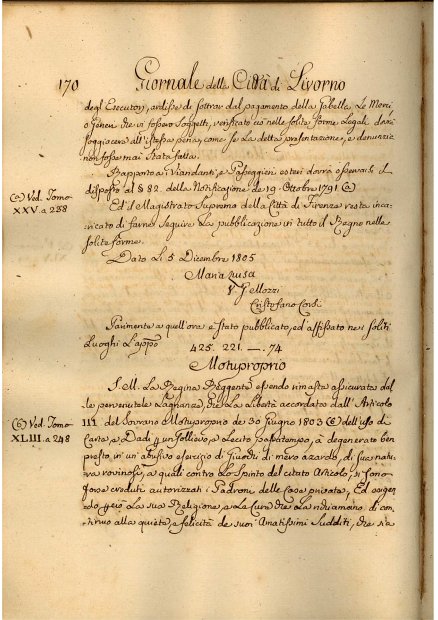 170 Giornale della Città di Livorno
degl'Esecutori, ardisse di sottrar dal pagamento della Gabella Le Merci,
o Generi che vi fossero soggetti, verificato ciò nelle solite forme Legali dovrà
soggiacere all'istessa pena, come se La detta presentazione, e denunzie
non fosse mai stata fatta.
Rapporto ai Viandanti, e Passeggieri esteri dovrà osservarsi il
(a) Ved. Tomo
XXV. a 238
disposto al § 82. della Notificazione de 19. Ottobre 1791 (a)
Ed il Magistrato Supremo della Città di Firenze resta inca-
ricato di farne seguire La pubblicazione in tutto il Regno nelle
solite forme.
Dato Li 5 Dicembre 1805
Maria Luisa
V. J. Mozzi
Cristofano Corsi
Parimente a quell'ora è stato pubblicato, ed affissato nei soliti
Luoghi L'appo
425. 221. — 74
Motuproprio
S. M. La Regina Reggente essendo rimasta assicurata dal-
le pervenutele Lagnanze, che La Libertà accordata dall'Articolo
(b) Ved. Tomo
XLIII. a 248
III del Sovrano Motuproprio de 30 Giugno 1803 (b) dell'uso di
Carte, e Dadi per sollievo, e Lecito passatempo, è degenerato ben
presto, in un'abusivo esercizio di Giuochi di mero azzardo, di sua natu-
ra rovinosi, a quali contro Lo Spirito del citato Articolo, si sono
forse creduti autorizzati i Padroni delle Case private. Ed esigen-
do La sua Religione, e La cura che La richiamano di con-
tinuo alla quiete, e felicità de suoi Amatissimi Sudditi, che sia